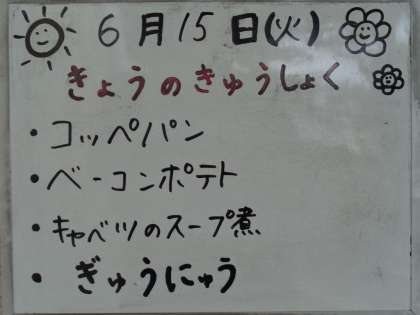 6月15日(火)
きょうのきゅうしょく
・コッペパン
・ベーコンポテト
・キャベツのスープ煮
・ぎゅうにゅう